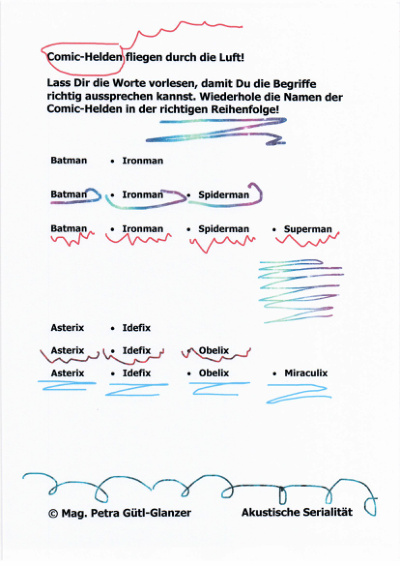 Comic-Helden fliegen durch die Luft!
Lass Dir die Worte vorlesen, damit Du die Begriffe
richtig aussprechen kannst. Wiederhole die Namen der
Comic-Helden in der richtigen Reihenfolge!
Batman • Ironman
Batman • Ironman • Spiderman
Batman • Ironman • Spiderman • Superman
Asterix • Idefix
Asterix • Idefix • Obelix
Asterix • Idefix • Obelix • Miraculix
© Mag. Petra Gütl-Glanzer Akustische Serialität